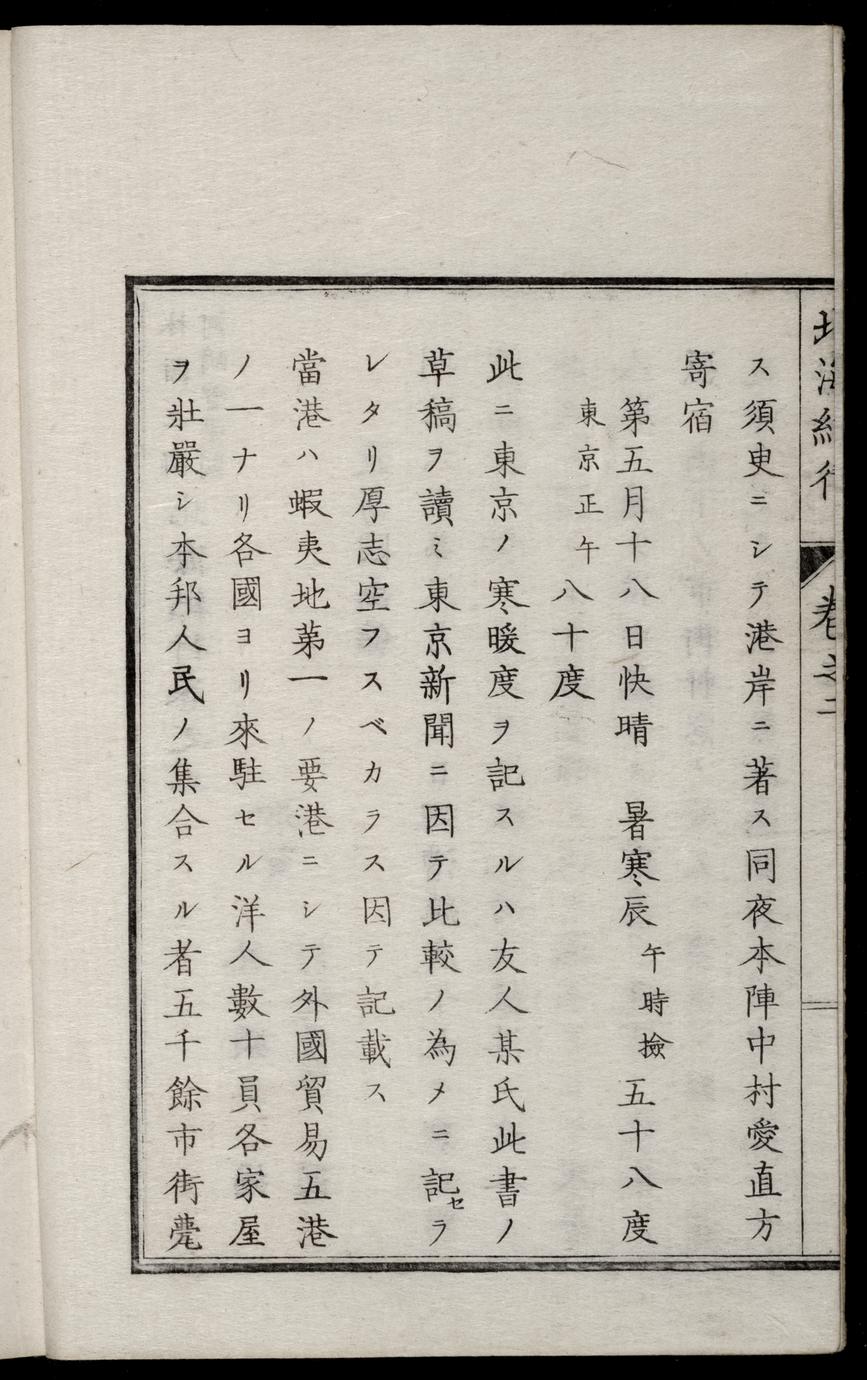 北海紀行 卷之二
ス須臾ニシテ港岸ニ著ス同夜本陣中村愛直方
寄宿
第五月十八日快晴 暑寒辰午時撿五十八度
東京正午八十度
此ニ東京ノ寒暖度ヲ記スルハ友人某氏此書ノ
草稿ヲ讀ミ東京新聞ニ因テ比較ノ為メニ記セラ
レタリ厚志空フスベカラス因テ記載ス
當港ハ蝦夷地苐一ノ要港ニシテ外國貿易五港
ノ一ナリ各國ヨリ來駐セル洋人數十員各家屋
ヲ壯嚴シ本邦人民ノ集合スル者五千餘市街甍